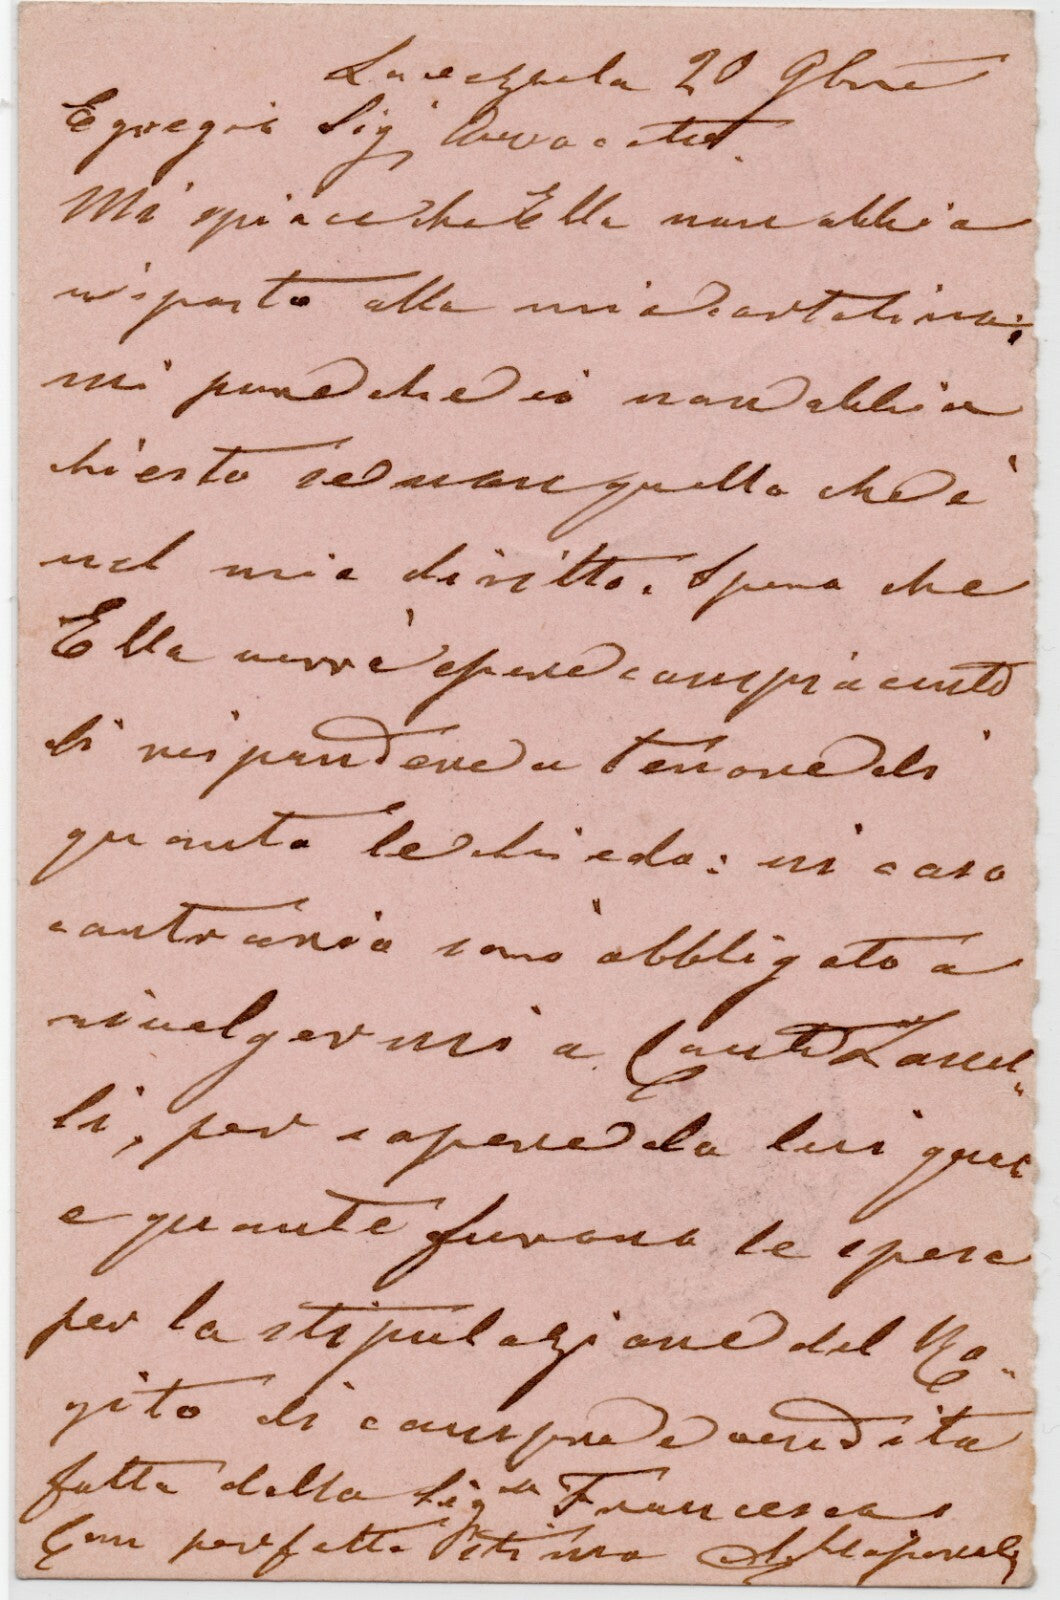 20 9bre
Egregio Sig. Avvocato
Mi spiace che Ella non abbia
risposto alla mia cartolina;
mi pare che io non abbia
chiesto se non quello che è
nel mio diritto. Spero che
Ella vorrà essere compiacente
di rispondere a tenore di
quanto le chiedo: in caso
contrario sono obbligato a
rivolgermi a
li, per sapere da lui quali
e quante furono le spese
per la stipulazione del Ro-
gito di compra e vendita
fatta dalla Sig.ra Francesca
Con perfetta stima